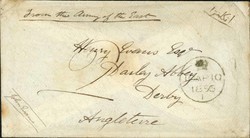 From the Army of the East
Henry Evans Esqr
Darley Abbey
Derby
Angleterre
AP 10
1855